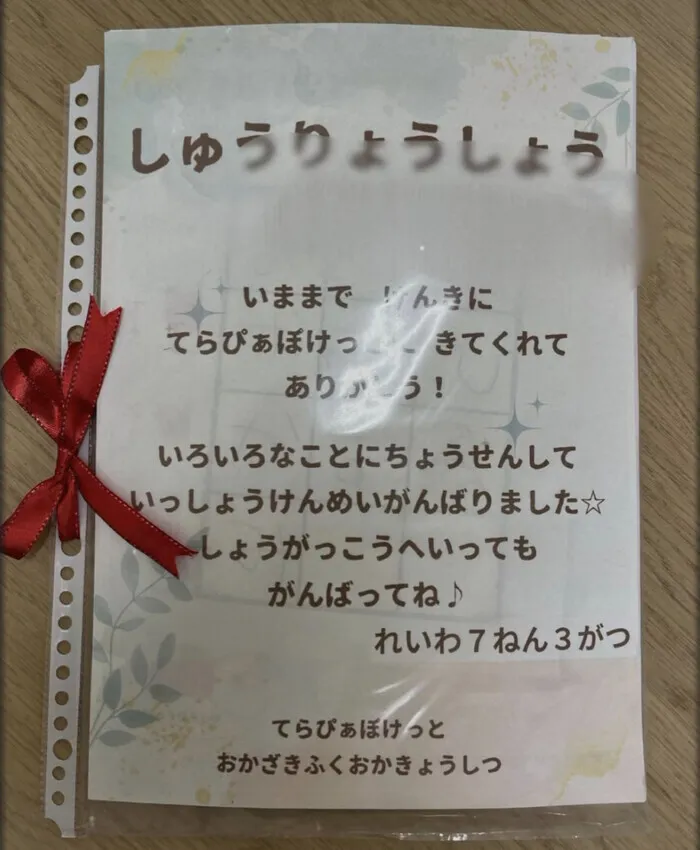 しゅうりょうしょう
いままで　げんきに
てらぴぁぽけっとに きてくれて
ありがとう！
いろいろなことにちょうせんして
いっしょうけんめいがんばりました☆
しょうがっこうへいっても
がんばってね♪
れいわ７ねん３がつ
てらぴぁぽけっと
おかざきふくおかきょうしつ